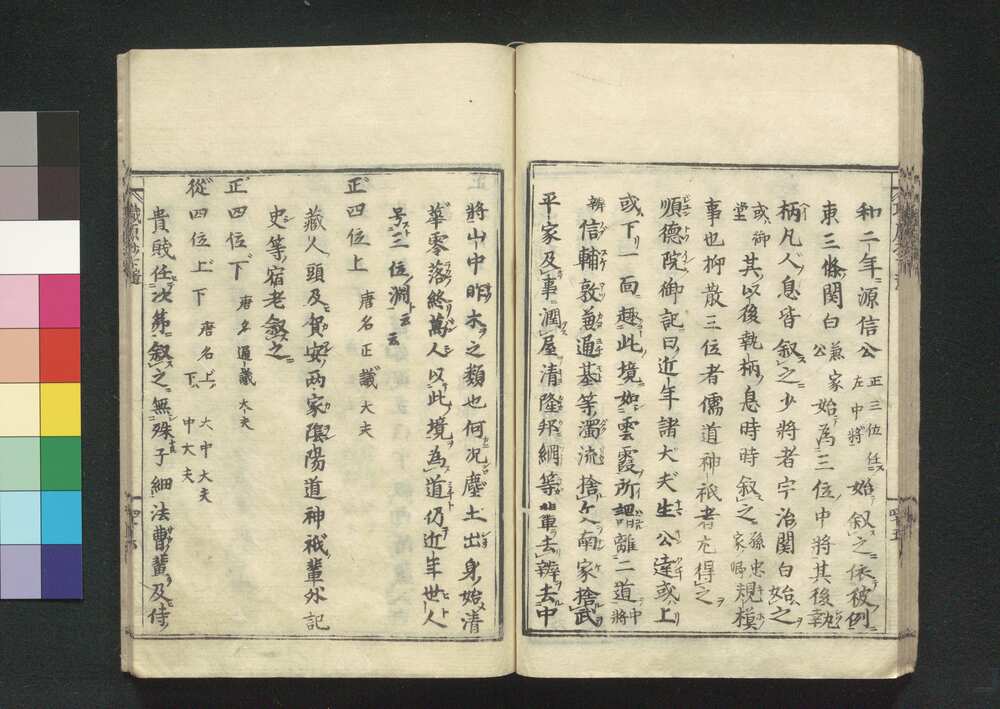 和二年源信公正三位任左中將始叙之依被例
東三條関白兼家公始為三位中將其後執
柄凡人息皆叙之少將者宇治関白始之
或御堂其以後執柄息時時叙之孫忠家歟規模
事也抑散三位者儒道神祇者尤得之
順德院御記曰近年諸大夫生公達或上
或下一面趣此境如雲霞所謂離二道中將
辨信輔敦通基等濁流捨入南家捨武
平家及事潤屋清隆邦綱等輩去辨去中
將山中昨木之類也何况塵土出身始清
華零落終萬人以此境為道仍近年世人
号三位渕云云
正四位上 唐名正議大夫
藏人頭及賀安両家陰陽道神祇輩外記
史等宿老叙之
正四位下 唐名通議大夫
從四位上下 唐名上大中大夫下中大夫
貴賤任次第叙之無殊子細法曹輩及侍